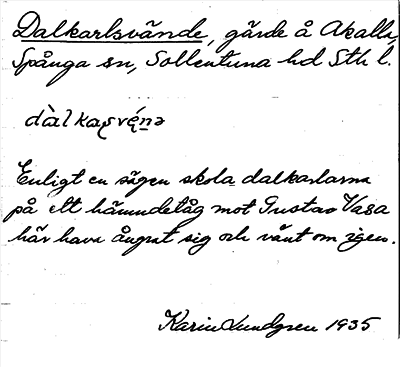 Dalkarlsvände, gärde å Akalla,
Spånga sn, Sollentuna hd Sth l.
Enligt en sägen skola dalkarlarna
på ett hämndetåg mot Gustav Vasa
här hava ångrat sig och vänt om igen.
Karin Lundgren 1935